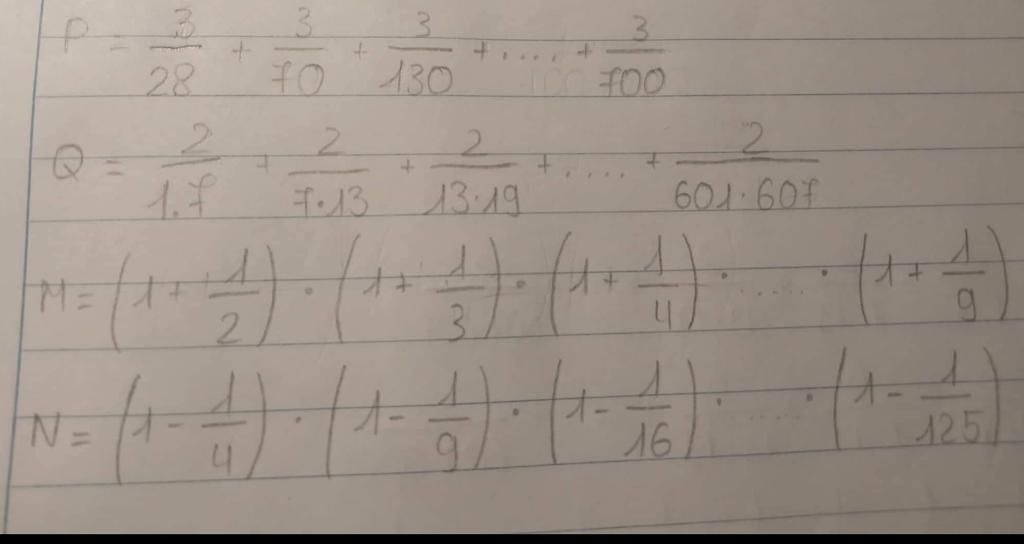 P = 3/28 + 3/70 + 3/130 + .... + 3/700
Q = 2/1.7 + 2/7.13 + 2/13.19 + .... + 2/601.607
M = (1 + 1/2) . (1 + 1/3) . (1 + 1/4) . ..... . (1 + 1/9)
N = (1 - 1/4) . (1 - 1/9) . (1 - 1/16) . ..... . (1 - 1/125)